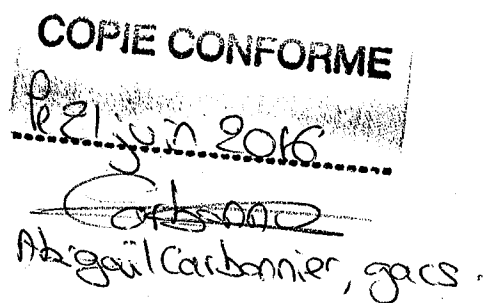 COPIE CONFORME
le 21 juin 2016
Carbonne
Abigaïl Carbonnier, gacs.